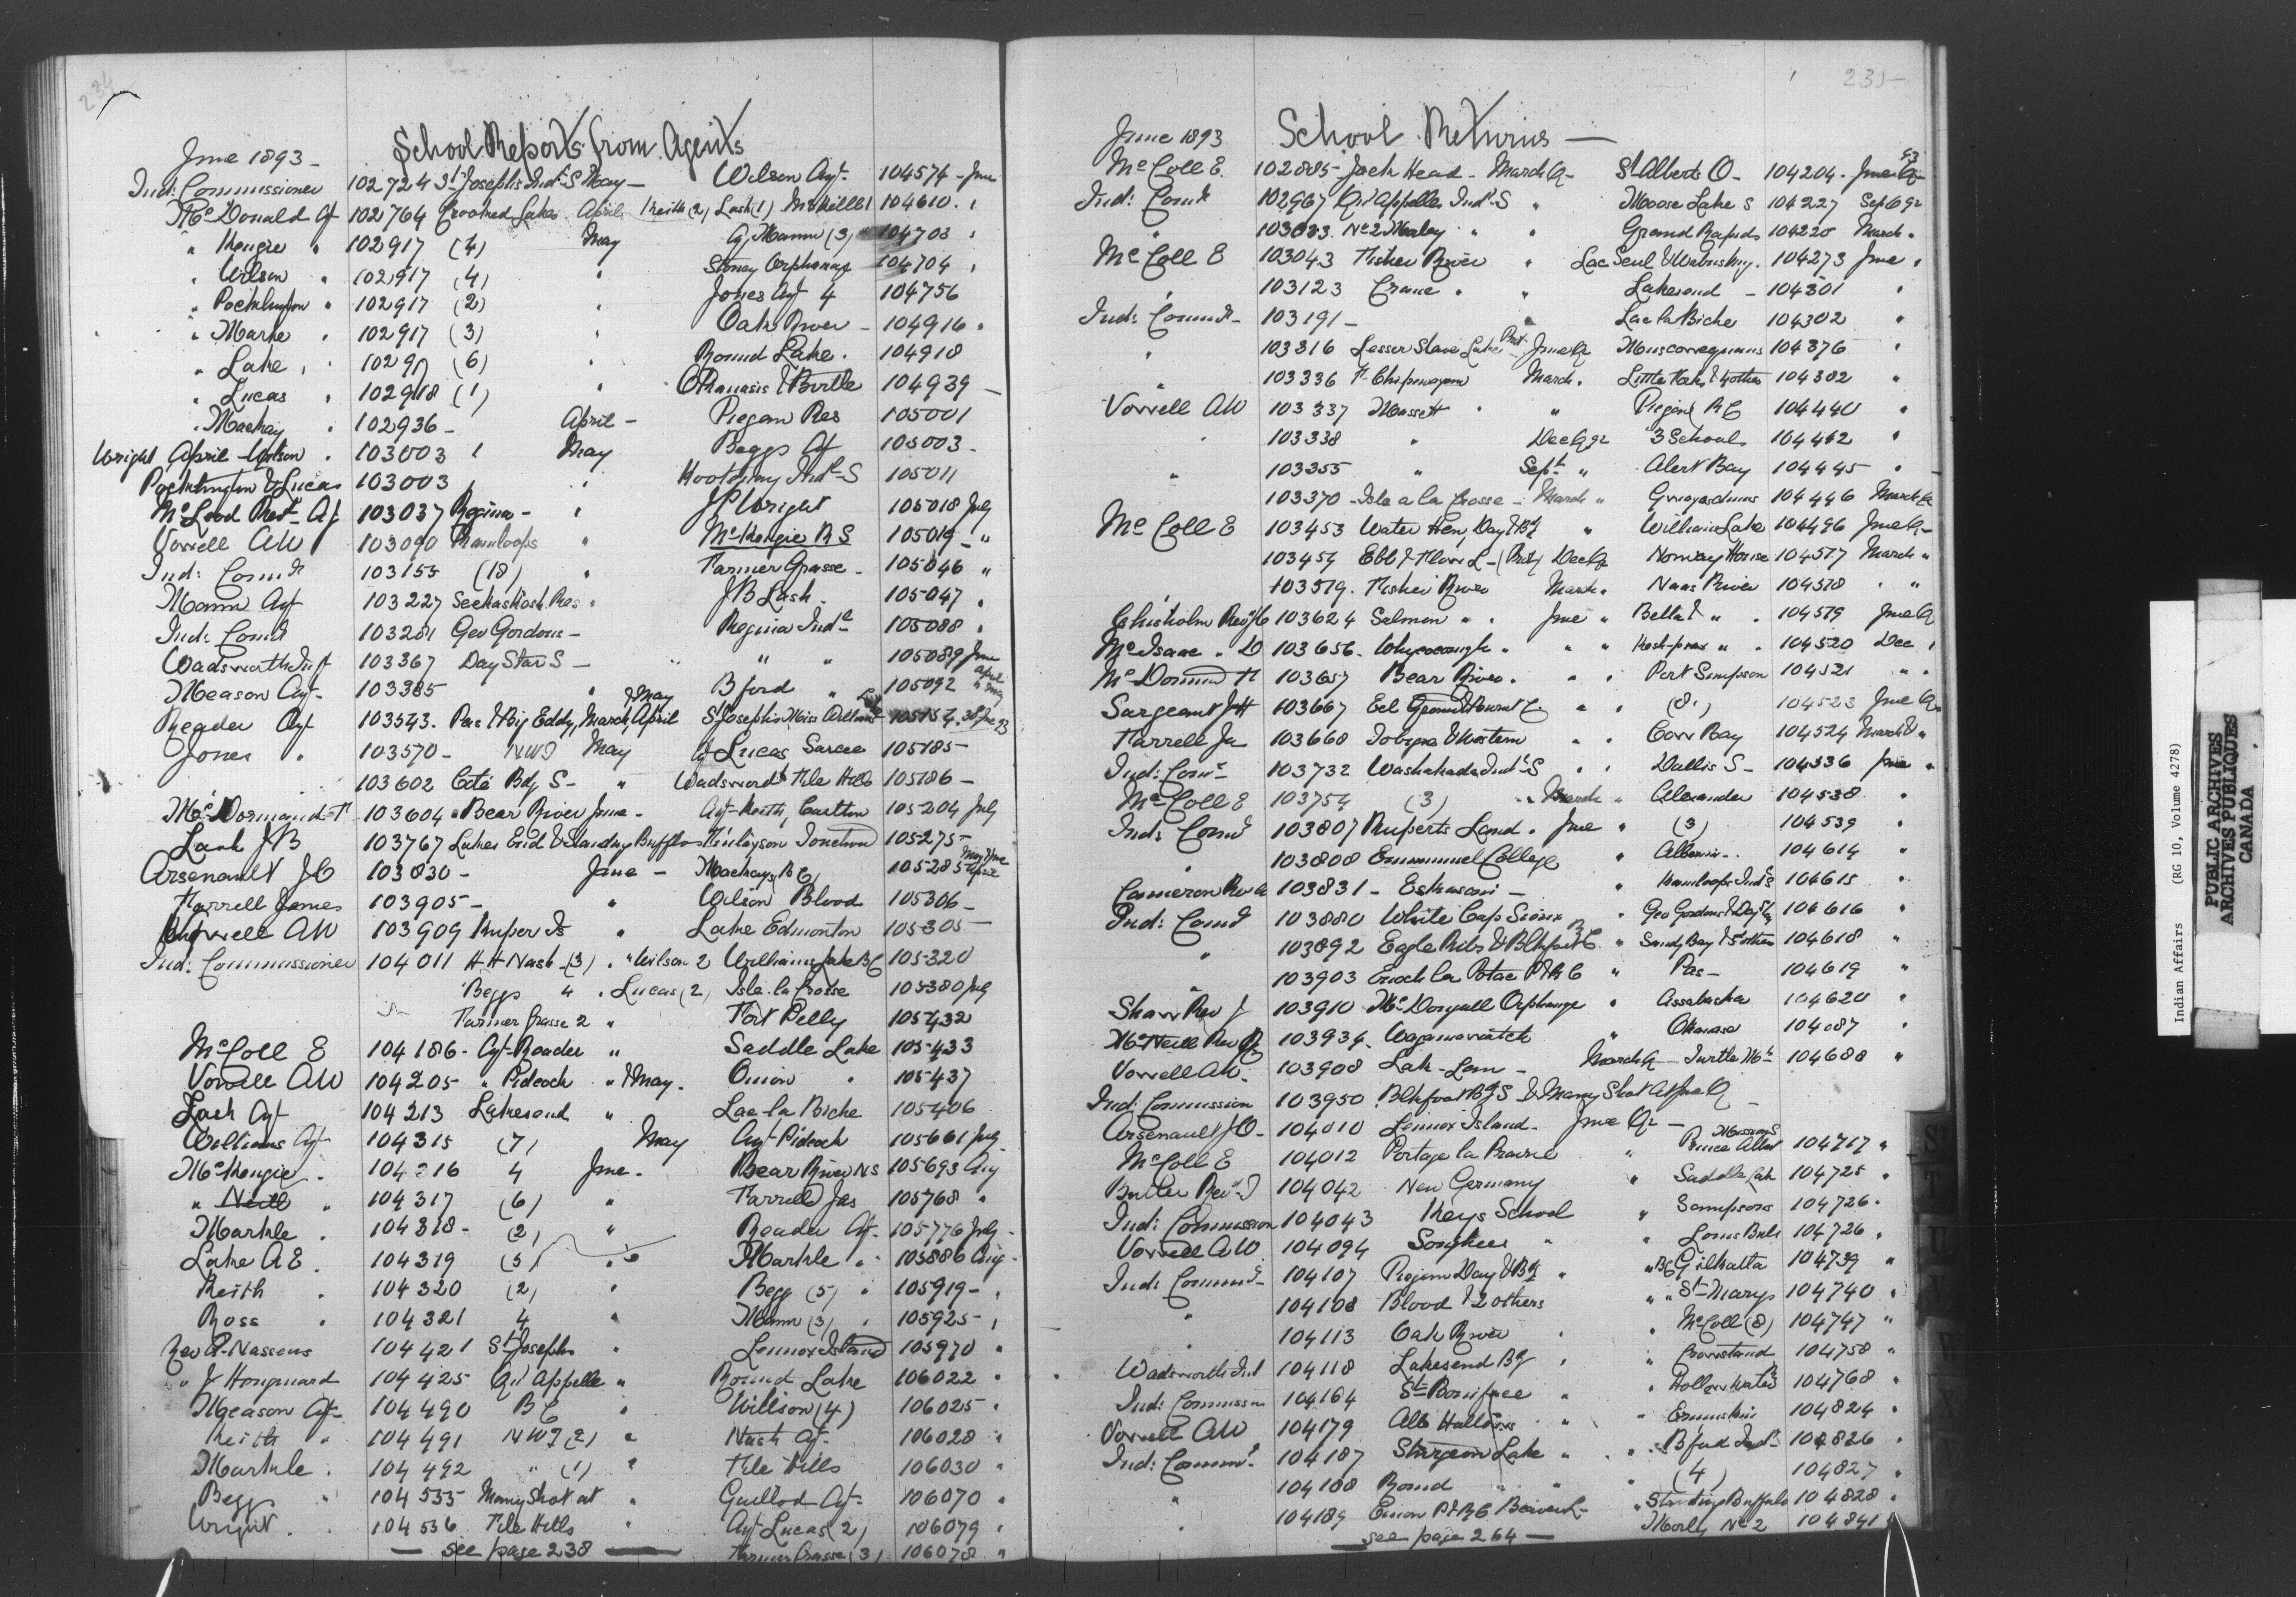 234
School Reports from Agents
June 1893 -
Ind: Commissioner 102724 St Josephs Ind. S May - Wilson Agt. 104574 - June
McDonald Agt 102764 Crooked Lakes April Keith (2) Lash (1) 104610 "
" " 102917 (4) May Agt Mann (3) " 104703 "
" Wilson " 102917 (4) " Stoney Orphanage 104704 "
" Pocklington " 102917 (2) " Jones Agt 4 104756
" " 102917 (3) " Oak River - 104916 "
" Lake " (6) " Round Lake . 104918
" Lucas " 102918 (1) " & Birtle 104939 -
" Mackay " 102936 - April - Piegan Res 105001
Wright April Wilson . 103003 " May Beggs Agt 105003 -
Pocklington & Lucas 103003 " " Kootenay Ind. S 105011
McLeod Rev Agt 103037 Regina - " J P Wright 105018 July
Vowell AW 103090 Kamloops " McKenzie R S 105019 - "
Ind: Comr 103155 (18) " Farmer Grasse - 105046 "
Mann Agt 103227 Seekaskootch Res " J B Lash . 105047 "
Ind: Comr 103281 Geo Gordons - Regina Ind. 105088 "
Wadsworth Insp 103367 Day Star S - " " " 105089 June
Meason Agt - 103385 " " B ford " 105092 April & May
Reader Agt 103543 . Pas & Big Eddy, March, April & May St Josephs Miss
Jones " 103570 - NWT May Agt Lucas Sarcee 105185 -
" 103602 Coté Bdg S - " Wadsworth File Hills 105186 -
McDormand T 103604 Bear River June - Agt Keith, Carlton 105204 July
Lash J B 103767 Lakes End & Standing Buffalo Finlayson 105275 -
Arsenault J O 103830 - June - Mackay, B C
Farrell James 103905 - " Wilson Blood 105306 -
Vowell AW 103909 Kuper Is " Lake Edmonton 105305 -
Ind: Commissioner 104011 H H Nash (3) . " Wilson 2 Williams Lake BC 105320
Beggs 4 . Lucas (2) Isle la Crosse 105380 July
Farmer Grasse 2 " Fort Pelly 105432
McColl E 104186 - Agt Reader " Saddle Lake 105433
Vowell AW 104205 - " Pidcock " & May . Onion " 105437
Lash Agt 104213 Lakesend " Lac la Biche 105406
Williams Agt 104315 (7) May Agt Pidcock 105661 July
McKenzie . 104316 4 June . Bear River NS 105693 Aug
" Neill " 104317 (6) " Farrell Jas 105768 "
Markle . 104318 - (2) " Reader Agt - 105776 July -
Lake A E . 104319 (5) " Markle " 105886 Aug -
Keith . 104320 (2) " Begg (5) " 105919 - "
Ross . 104321 4 " Mann (3) " 105925 - "
Rev A. Nassens 104421 St Josephs " Lennox Island 105970 "
" J Hougnard 104425 Qu'Appelle " Round Lake 106022 "
Meason Agt 104490 B C " Wilson (4) 106025 "
Keith " 104491 NWT (2) " Nash Agt - 106028 "
Markle . 104492 " (1) " File Hills 106030 "
Begg " 104535 Many Shot at " Guillod Agt - 106070 "
Wright . 104536 File Hills " Agt Lucas (2) 106079 "
- see page 238 - Farmer Grasse (3) 106078 "
235
June 1893 School Returns -
McColl E. 102885 - Jack Head - March Q - St Alberts O - 104204 - June Q 93
Ind: Comr 102967 Qu'Appelle Ind. S " Moose Lake S 104227 Sept Qr
" No 2 Morley " " Grand Rapids 104228 March "
McColl E 103043 Fisher River " Lac Seul & 104273 June "
" 103123 Crane " " Lakesend - 104301 "
Ind: Comr - 103191 - " Lac la Biche 104302 "
" 103316 Lesser Slave Lake Prot June Q 104376 "
" 103336 Ft Chipewayan March . 104382 "
Vowell AW 103337 Massett " " Piegan R C 104440 "
" 103338 " Dec Qr 3 Schools 104442 "
" 103355 " Sept " Alert Bay 104445 "
103370 - Isle a la Crosse - March " 104446 March Q
McColl E 103453 Water Hen, Day & Bdg " Williams Lake 104496 June Q -
103454 Ebb & Flow L - (Prot) Dec Q Norway House 104517 March "
103519 . Fisher River March . Naas River 104518 " "
Chisholm Rev 103624 Salmon " . June " Bella 104519 June Q
McIsaac . D 103656 . Whycocomagh " " " 104520 Dec "
McDormand T 103657 Bear River . " " Port Simpson 104521 " "
Sargeant J H 103667 Eel Ground & Burnt C " " (8) 104523 June Q
Farrell Ja 103668 Tobique & Western " " 104524 March "
Ind: Comr 103732 Washakada Ind. S " " Dallis S - 104536 June "
McColl E 103754 (3) " March " Alexander 104538 "
Ind: Comr 103807 Ruperts Land . June " (3) 104539 "
" 103808 Emmanuel College " Alberni - . 104614 "
Cameron Rev A 103831 - Eskasoni - " Kamloops Ind S 104615 "
Ind: Comr 103880 White Cap Sioux " Geo Gordons & Day Star 104616 "
" 103892 Eagle Ribs & Blkfoot " Sandy Bay & 5 others 104618 "
" 103903 Enoch la Potac P & R C " Pas - 104619 "
Shaw Rev J 103910 McDougall Orphanage " Assabaska 104620 "
McNeill Rev 103934 . Wagamatcook " Okanase 104687 "
Vowell AW . 103908 - March Q - Turtle Mt 104688 "
Ind: Commission 103950 Blkfoot Bdg S & Many Shot At June Q -
Arsenault J O - 104010 Lennox Island - June Qr -
McColl E 104012 Portage la Prairie " Prince Albert Mission S 104717 "
Butler Rev. T 104042 New Germany " Saddle Lake 104725 "
Ind: Commission 104043 Keys School " Sampsons 104726 .
Vowell AW 104094 Songhees " " Louis Bulls 104726 "
Ind: Comr - 104107 Piegan Day & Bdg " " BC Gitkatla 104739 "
" 104108 Blood & 2 others " " St Marys 104740 "
" 104113 Oak River " McColl (8) 104747 "
Wadsworth Ind 104118 Lakesend Bdg " " Crowstand 104758 "
Ind: Commission 104164 St Boniface " " Hollow Water 104768 "
Vowell AW 104179 All Hallows " " Ermineskin 104824 "
Ind: Comr 104187 Sturgeon Lake " " Bford Ind. 104826 "
104188 Round " " (4) 104827 "
" 104189 Onion P & R C Beaver L - " Standing Buffalo 104828 "
- see page 264 - Morley No 2 104841
Indian Affairs (RG 10, Volume 4278)
PUBLIC ARCHIVES
ARCHIVES PUBLIQUES
CANADA